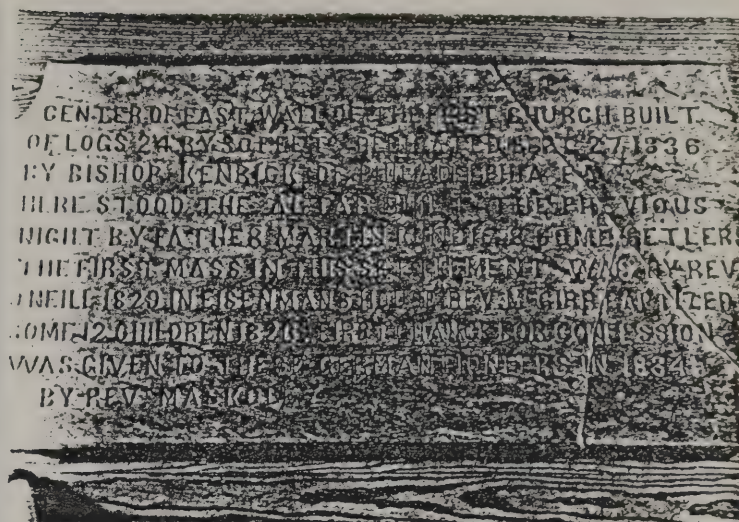 CENTER OF EAST WALL OF THE FIRST CHURCH BUILT
OF LOGS 24 BY 30 FEET DEDICATED 27 1836
BY BISHOP KENRICK OF PHILADELPHIA PA
HERE STOOD THE ALTAR THE PREVIOUS
NIGHT BY FATHER MARTIN KUNDIG & SOME SETTLERS
THE FIRST MASS IN THIS SETTLEMENT WAS BY REV
O NEILE 1829 IN EISENMANS HOUSE REV GIRP BAPTIZED
SOME 12 CHILDREN FIRST CHANCE FOR CONFESSION
WAS GIVEN TO THE GERMAN PIONEERS IN 1834
BY REV MASKOL